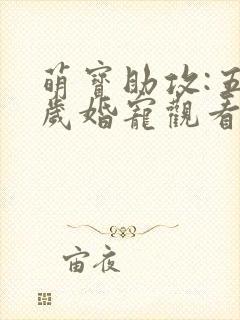 萌寶助攻:五
歲婚寵觀看
宙夜